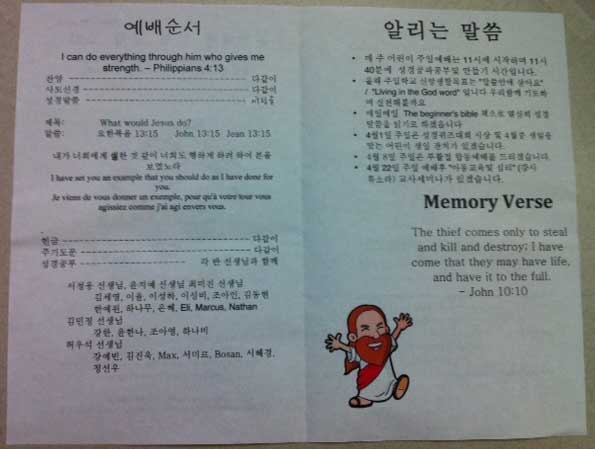 예배순서
I can do everything through him who gives me
strength. – Philippians 4:13
찬양 ---------------------------------------- 다같이
사도신경 ---------------------------------------- 다같이
성경말씀 ----------------------------------------
제목: What would Jesus do?
말씀: 요한복음 13:15 John 13:15 Jean 13:15
내가 너희에게 행한 것 같이 너희도 행하게 하려 하여 본을
보였노라
I have set you an example that you should do as I have done for
you.
Je viens de vous donner un exemple, pour qu'à votre tour vous
agissiez comme j'ai agi envers vous.
헌금 ---------------------------------------- 다같이
주기도문 ---------------------------------------- 다같이
성경공부 ------------------------------ 각 반 선생님과 함께
서정웅 선생님, 윤지예 선생님 최미진 선생님
김세영, 이율, 이성하, 이성비, 조아인, 김동현
한예원, 하나무, 은혜, Eli, Marcus, Nathan
김민정 선생님
강찬, 윤현나, 조아영, 하나비
허우석 선생님
강예빈, 김진욱, Max, 서미르, Bosan, 서혜경,
정선우
알리는 말씀
• 매 주 어린이 주일예배는 11시에 시작하며 11시
40분에 성경공과공부및 만들기 시간입니다.
• 올해 주일학교 신앙생활목표는 "말씀안에 살아요"
/ "Living in the God word" 입니다 우리함께 기도하
며 실천해볼까요
• 매일매일 The beginner's bible 책으로 열심히 성경
말씀을 읽기로 하겠습니다
• 4월1일 주일은 성경퀴즈대회 시상 및 4월중 생일을
맞는 어린이 생일 잔치가 있겠습니다.
• 4월 8일 주일은 부활절 합동예배를 드리겠습니다.
• 4월 22일 주일 예배후 "아동교육및 심리" (강사
) 교사세미나가 있겠습니다.
Memory Verse
The thief comes only to steal
and kill and destroy; I have
come that they may have life,
and have it to the full.
- John 10:10